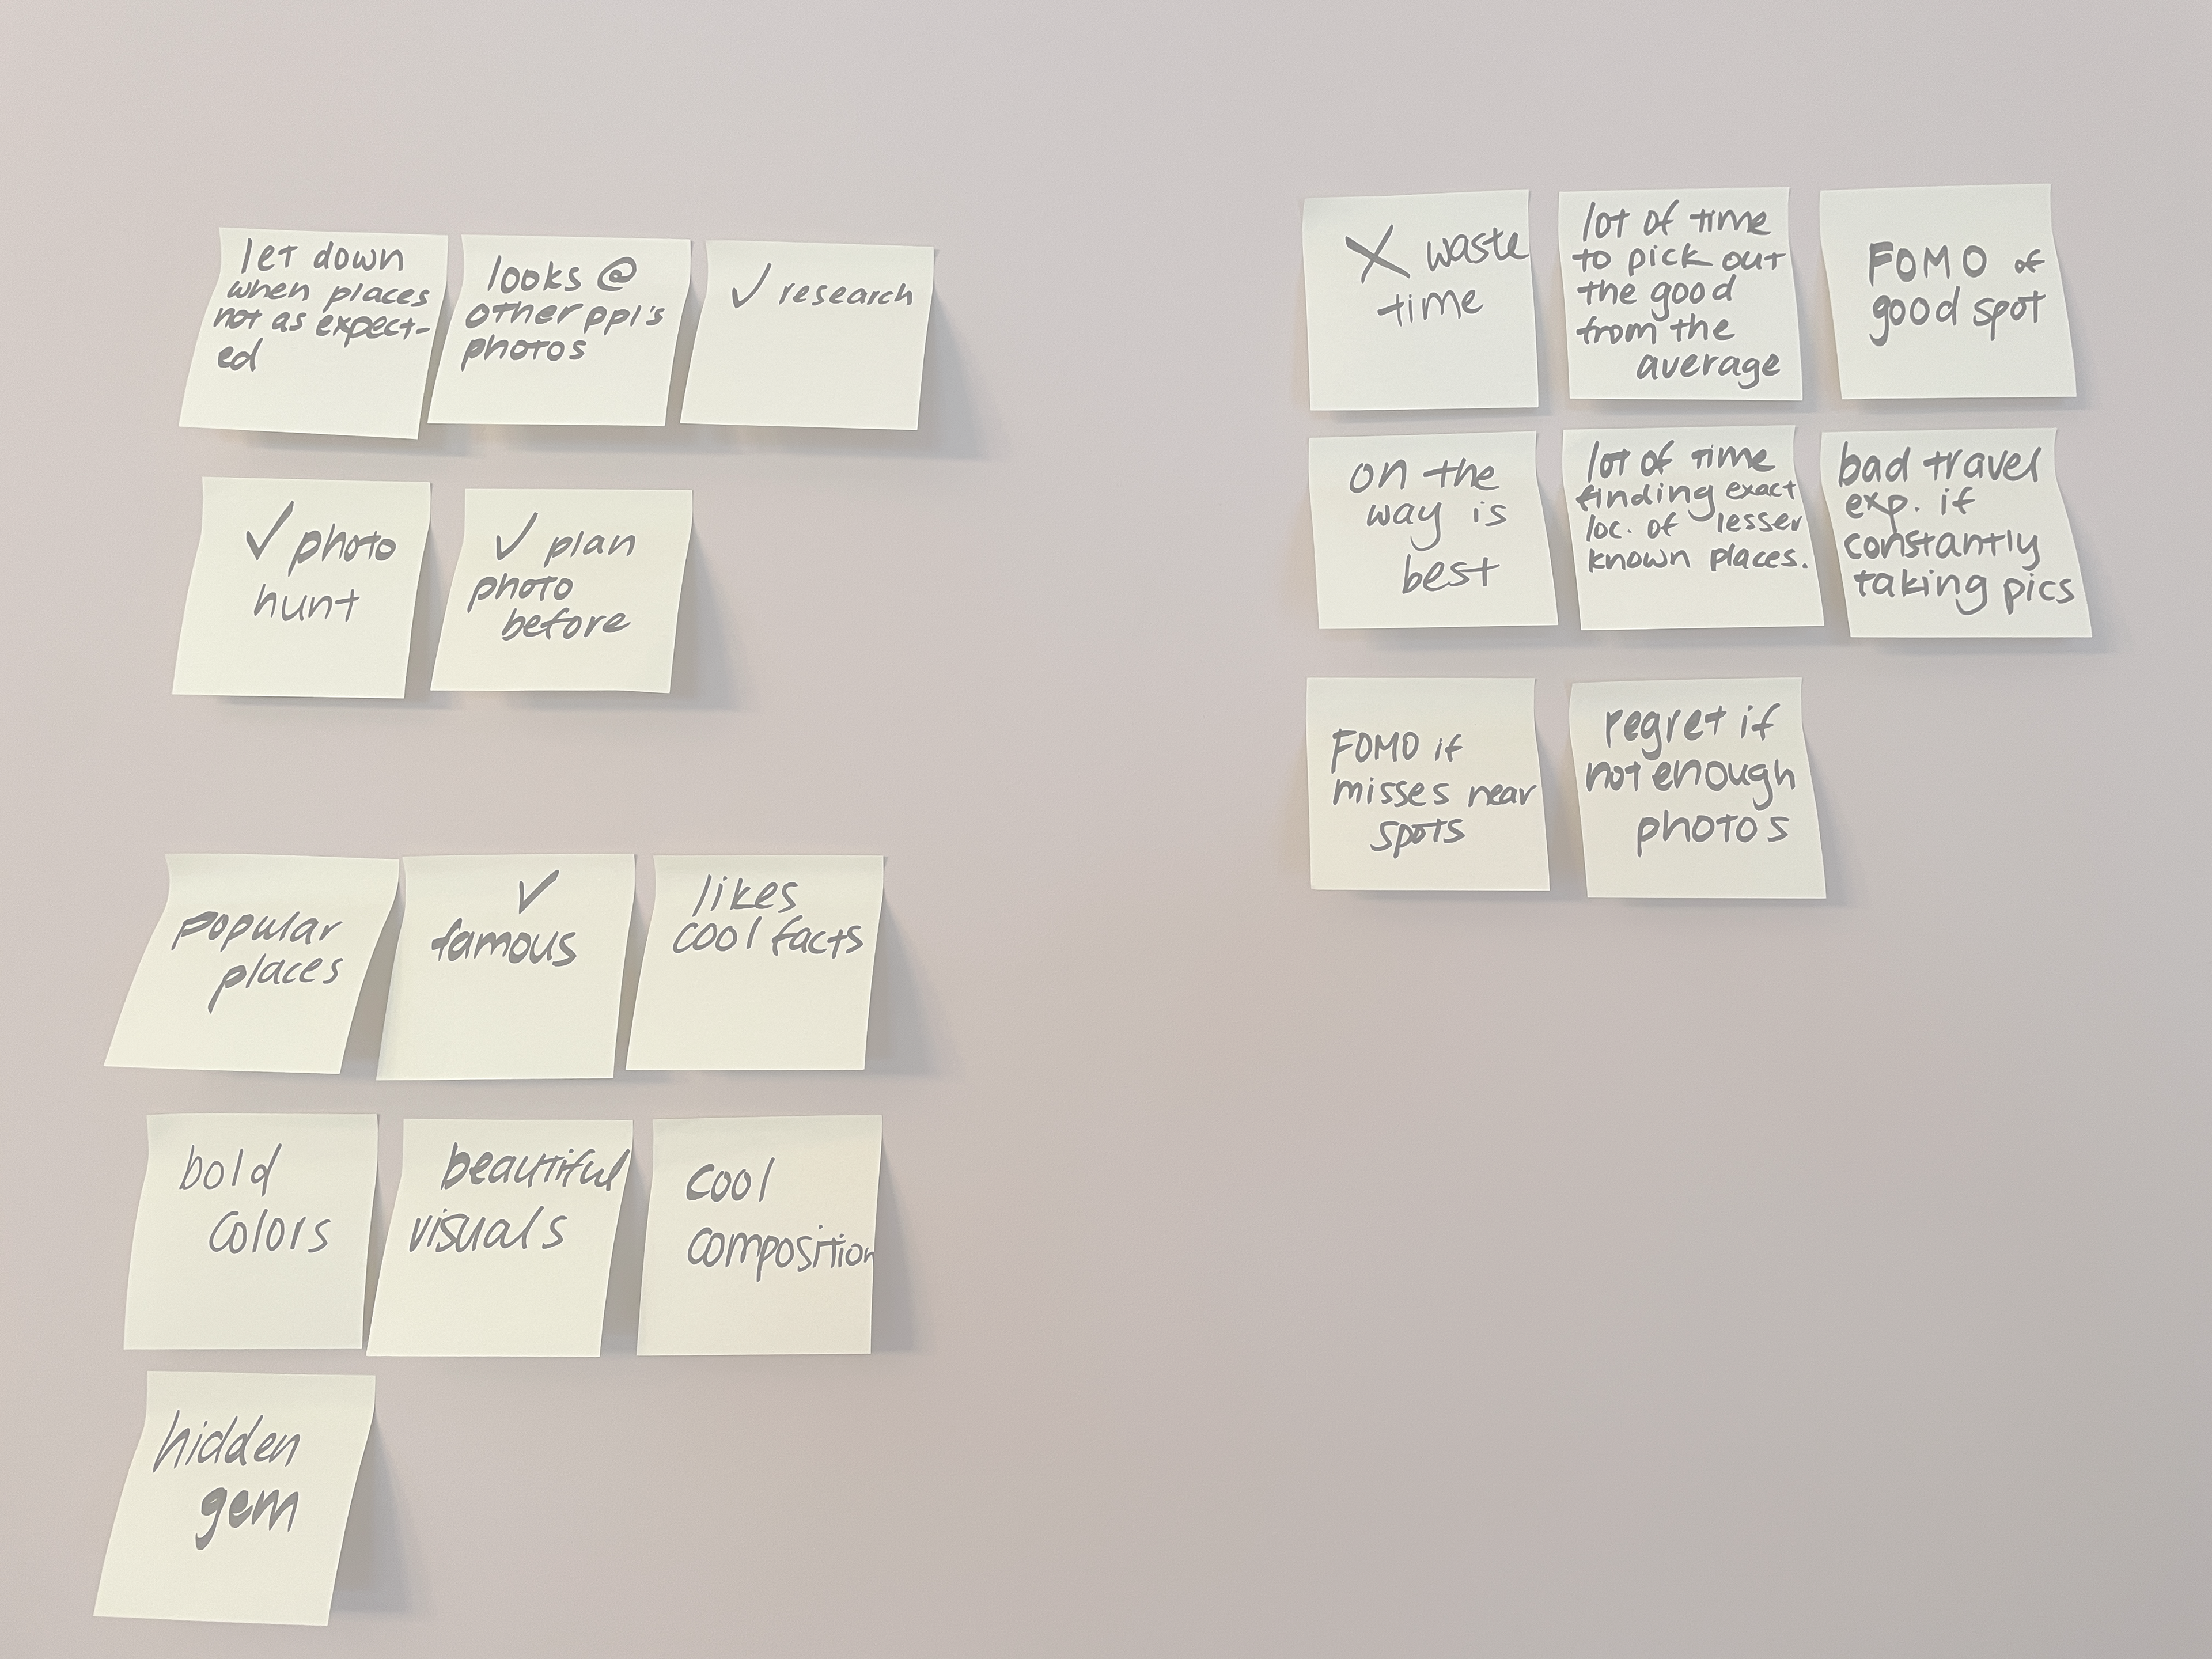 let down
when places
not as expect-
ed
looks @
other ppl's
photos
✓ research
✓ photo
hunt
✓ plan
photo
before
popular
places
✓
famous
likes
cool facts
bold
colors
beautiful
visuals
cool
composition
hidden
gem
X waste
time
lot of time
to pick out
the good
from the
average
FOMO of
good spot
on the
way is
best
lot of time
finding exact
loc. of lesser
known places.
bad travel
exp. if
constantly
taking pics
FOMO if
misses near
spots
regret if
not enough
photos